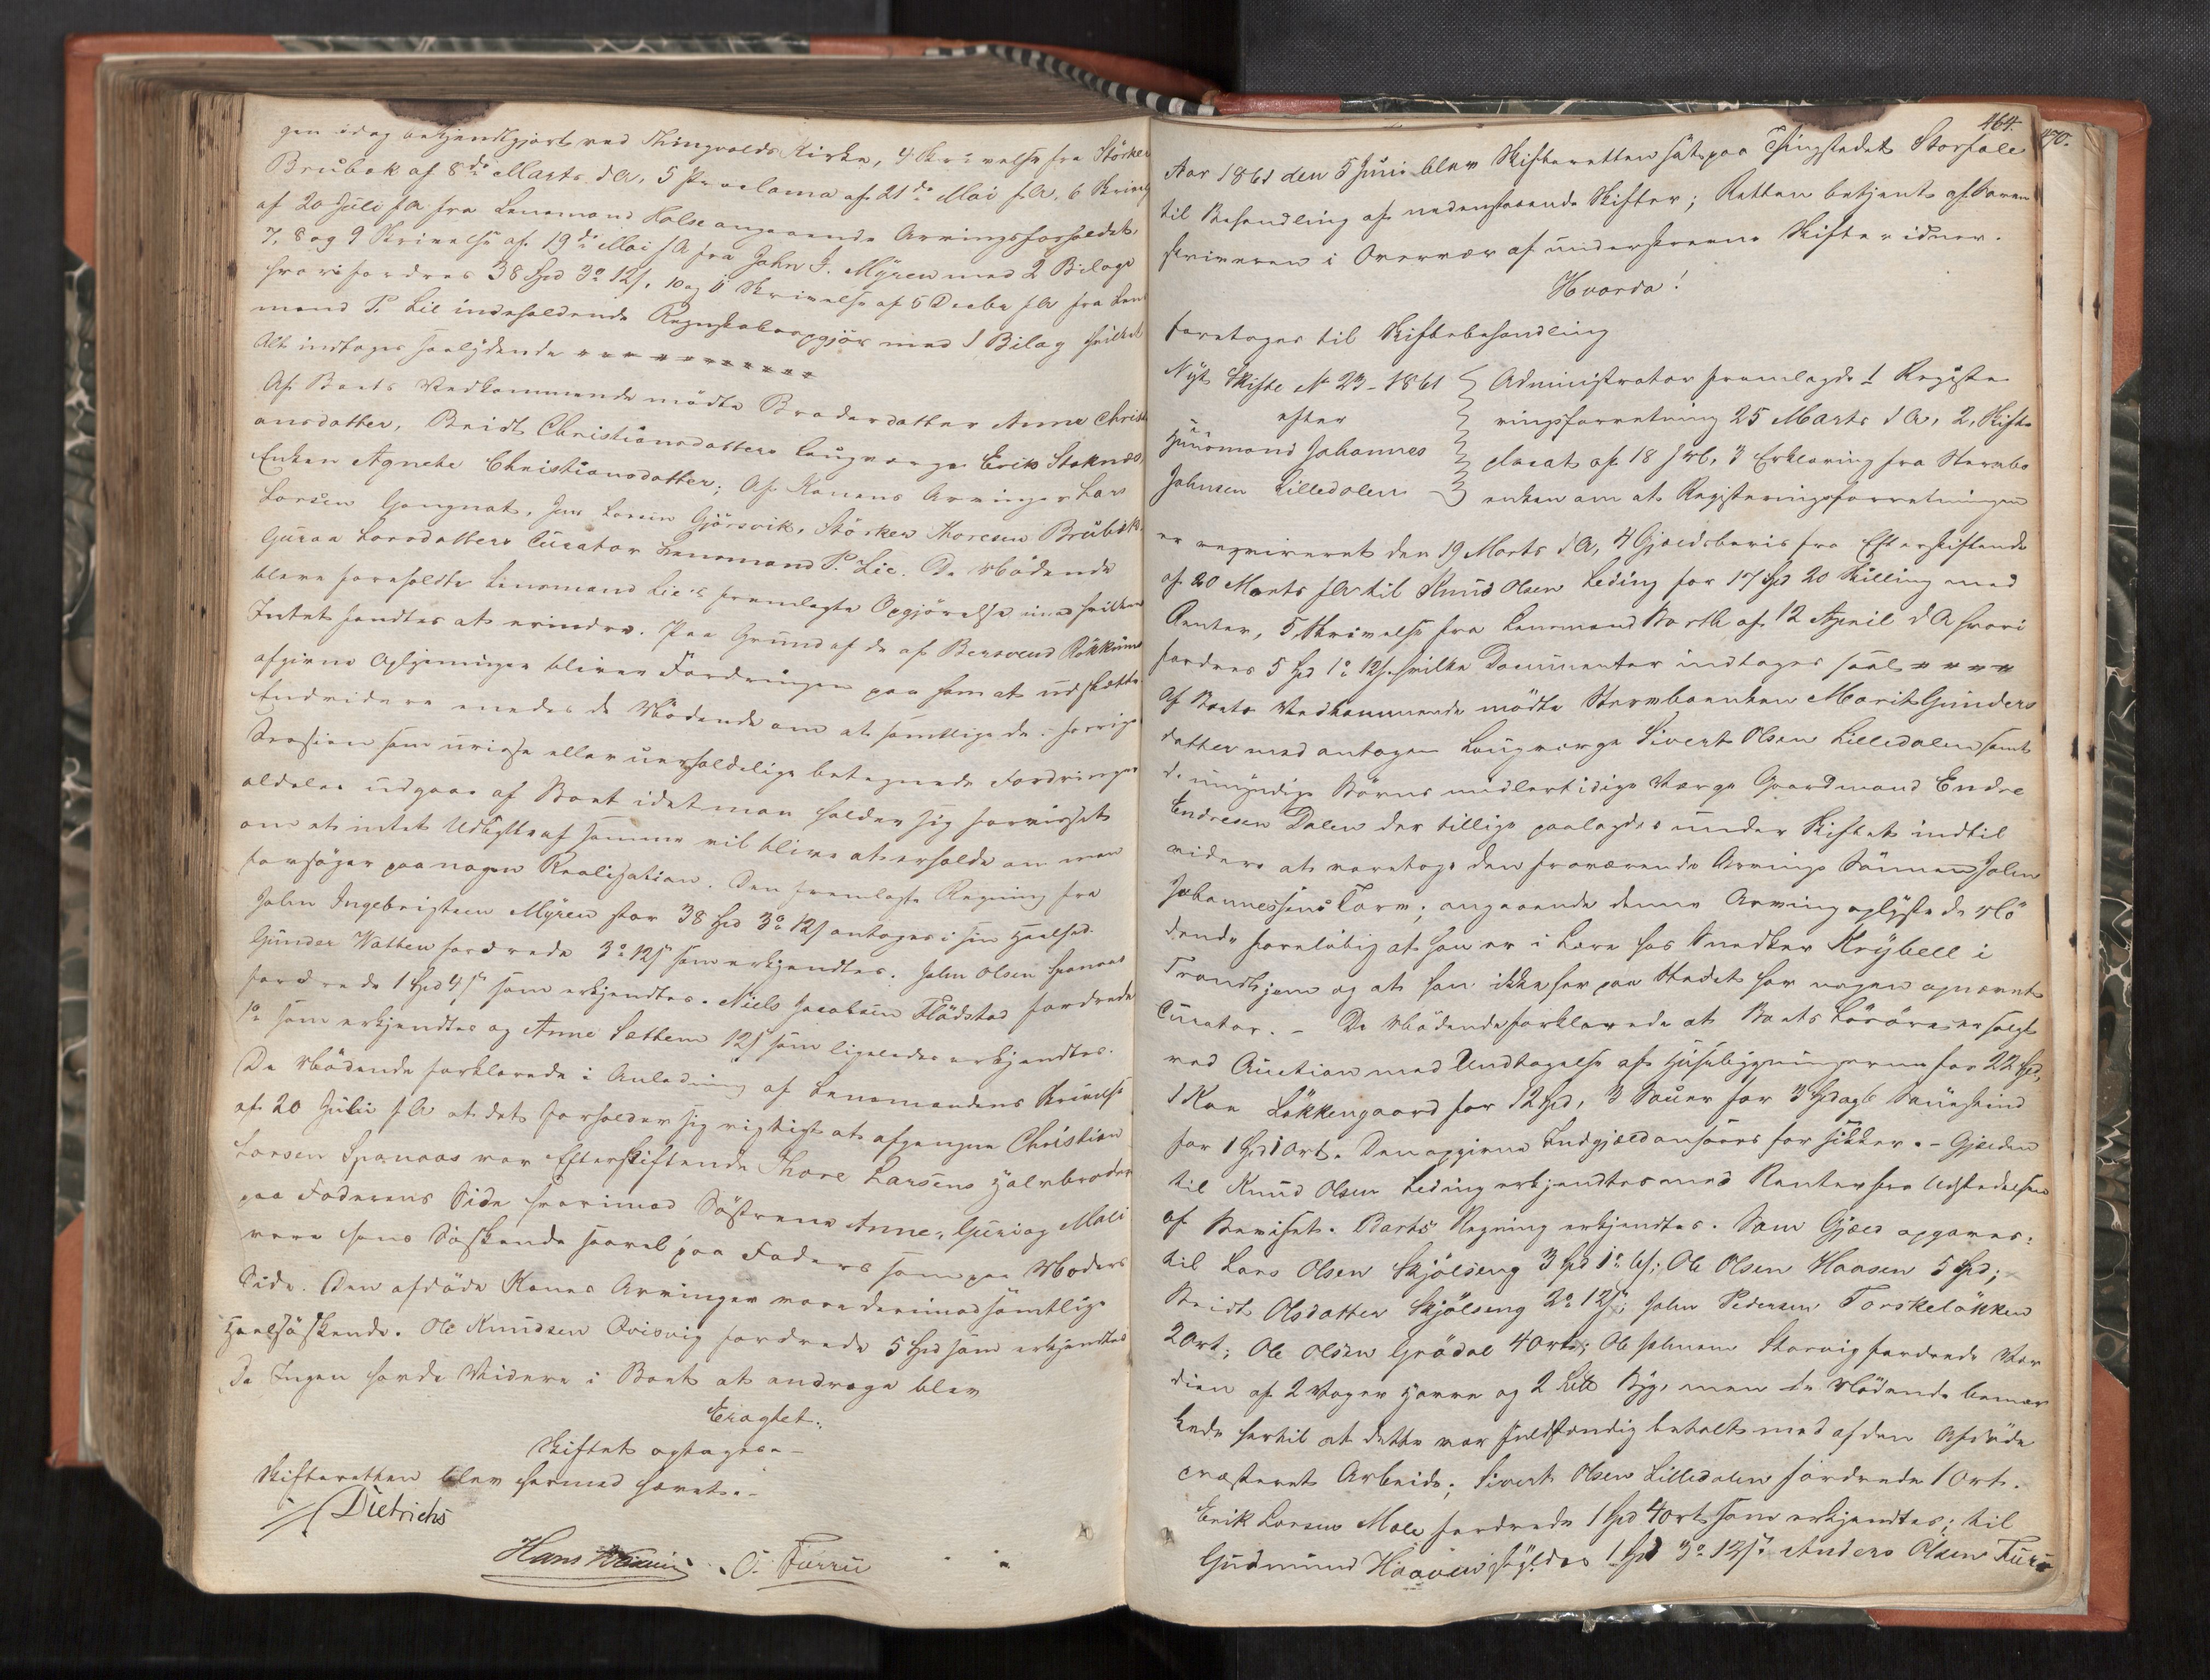 gen idag bekjendtgjort ved Thingvolds Kirke, 4 Skrivelse fra Störker
Brubæk af 8de Marts d A, 5 Proclama af 21de Mai f. A, 6 Skrivelse
af 20 Juli f A fra Lensmand Halse angaaende Arvingsforholdet,
7, 8 og 9 Skrivelse af 19de Mai f A fra John I. Myren med 2 Bilage
hvori fordres 38 Spd 3 o 12 s, 10 og 11 Skrivelse af 5 Decbr f A fra Lens
mand P. Lie indeholdende Regnskabsopgjör med 1 Bilag hvilket
Alt indtages saalydende
Af Boets Vedkommende mödte Broderdatter Anne Christi
ansdatter, Beret Christiansdatters Laugværge Erik Stoknæs,
Enken Agnethe Christiansdatter; Af Konens Arvinger Lars
Larsen Gangnat, Jens Larsen Gjörsvik, Störker Thoresen Brubæk
Guroa Larsdatters Curator Lensmand P. Lie. De Mödende
bleve foreholdte Lensmand Lie's fremlagte Opgjörelse imod hvilken
Intet fandtes at erindre. Paa Grund af de af Bersvend Rökkum
afgivne Oplysninger bliver Fordringen paa ham at udslette
Endvidere enedes de Mödende om at samtlige de i forrige
Session som uvisse eller uerholdelige betegnede Fordringer
aldeles udgaae af Boet idet man holder sig forvisset
om at intet Udbytte af samme vil blive at erholde om man
forsöger paa nogen Realisation. Den fremlagte Regning fra
John Ingebrigtsen Myren stor 38 Spd 3 o 12 s antoges i sin Heelhed.
Gunder Vatten fordrede 3 o 12 s som erkjendtes. John Olsen Spanaas
fordrede 1 Spd 4 s som erkjendtes. Niels Jacobsen Flödstad fordrede
1 o som erkjendtes og Anne Sæthem 12 s som ligeledes erkjendtes.
De Mödende forklarede i Anledning af Lensmandens Skrivelse
af 20 Juli f A at det forholder sig rigtigt at afgangne Christian
Larsen Spanaas var Efterskiftende Thore Larsens Halvbroder
paa Faderens Side hvorimod Söstrene Anne, Guri og Mali
vare hans Söskende saavel paa Faders som paa Moders
Side. Den afdöde Kones Arvinger vare derimod samtlige
Heelsöskende. Ole Knudsen Qvisvig fordrede 5 Spd som erkjendtes
Da Ingen havde Videre i Boet at andrage blev
Eragtet:
Skiftet optages -
Skifteretten blev hermed hævet. -
Dietrichs
Hans O. Furru
464.
470.
Aar 1861 den 5 Juni blev Skifteretten sat paa Thingstedet Storfale
til Behandling af nedenstaaende Skifter; Retten betjent af Soren
skriveren i Overvær af underskrevne Skiftevidner.
Hvorda!
foretoges til Skiftebehandling
Nyt Skifte No 23 - 1861
efter
Huusmand Johannes
Johnsen Lilledalen
Administrator fremlagde 1 Registe
ringsforretning 25 Marts d A, 2, Skifte
placat af 18 f M, 3 Erklæring fra Stervbo
enken om at Registeringsforretningen
er reqvireret den 19 Marts d A, 4 Gjeldsbevis fra Efterskiftende
af 20 Marts f A til Knud Olsen Leding for 17 Spd 20 Skilling med
Renter, 5 Skrivelse fra Lensmand Barth af 12 April d A hvori
fordres 5 Spd 1 o 12 s. hvilke Documenter indtages saal
Af Boets Vedkommende mödte Stervboenken Marit Gunders
datter med antagen Laugværge Sivert Olsen Lilledalen samt
de umyndige Börns midlertidige Værge Gaardmand Endre
Endresen Dalen der tillige paalagdes under Skiftet indtil
videre at varetage den fraværende Arving Sönnen John
Johannessens Tarv; angaaende denne Arving oplyste de Mö
dende foreløbig at han er i Lære hos Snedker Krybell i
Trondhjem og at han ikke her paa Stedet har nogen opnævnt
Curator. - De Mödende forklarede at Boets Lösöre er solgt
ved Auction med Undtagelse af Husebygningerne for 22 Spd,
1 Koe Lökkengaard for 12 Spd, 3 Sauer for 3 Spd og 6 Saueskind
for 1 Spd 1 Ort. Den opgivne Indgjeld ansaaes for sikker. - Gjelden
til Knud Olsen Leding erkjendtes med Renter fra Udstedelsen
af Beviset. Barths Regning erkjendtes. Som Gjæld opgaves:
til Lars Olsen Skjölseng 3 Spd 1 o 6 s; Ole Olsen Haasen 5 Spd;
Beret Olsdatter Skjölseng 2 o 12 s; John Pedersen Torskelökken
2 Ort; Ole Olsen Grödal 4 Ort; Ole Johnsen Storvig fordrede Vær
dien af 2 Voger Havre og 2 Byg, men de Mödende bemær
kede hertil at dette var fuldstændig betalt med af den Afdöde
præsteret Arbeide; Sivert Olsen Lilledalen fordrede 1 Ort.
Erik Larsen Mæle fordrede 1 Spd 4 Ort som erkjendtes; til
Gudmund Haaven skyldes 1 Spd 3 o 12 s. Anders Olsen Furu